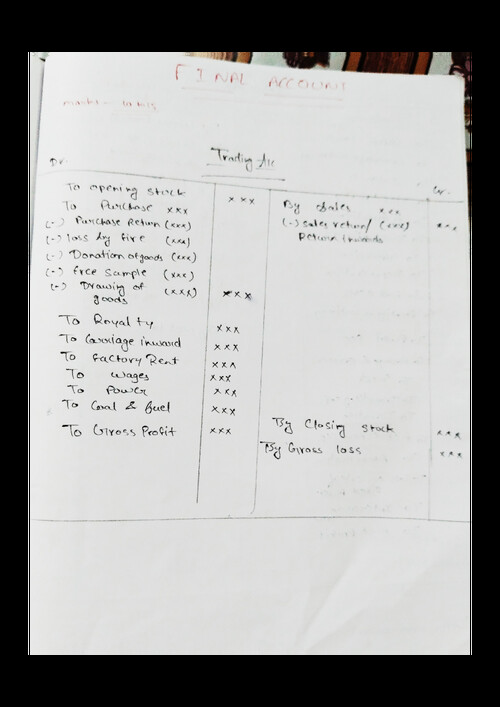 FINAL ACCOUNT
marks -
Dr.
Trading A/c
Cr.
To opening stock xxx
To Purchase xxx
(-) Purchase Return (xxx)
(-) loss by fire (xxx)
(-) Donation of goods (xxx)
(-) free sample (xxx)
(-) Drawing of goods (xxx) xxx
To Royalty xxx
To Carriage inward xxx
To Factory Rent xxx
To wages xxx
To Power xxx
To Coal & fuel xxx
To Gross Profit xxx
By Sales xxx
(-) sales return/ (xxx) xxx
Return inwards
By Closing stock xxx
By Gross loss xxx